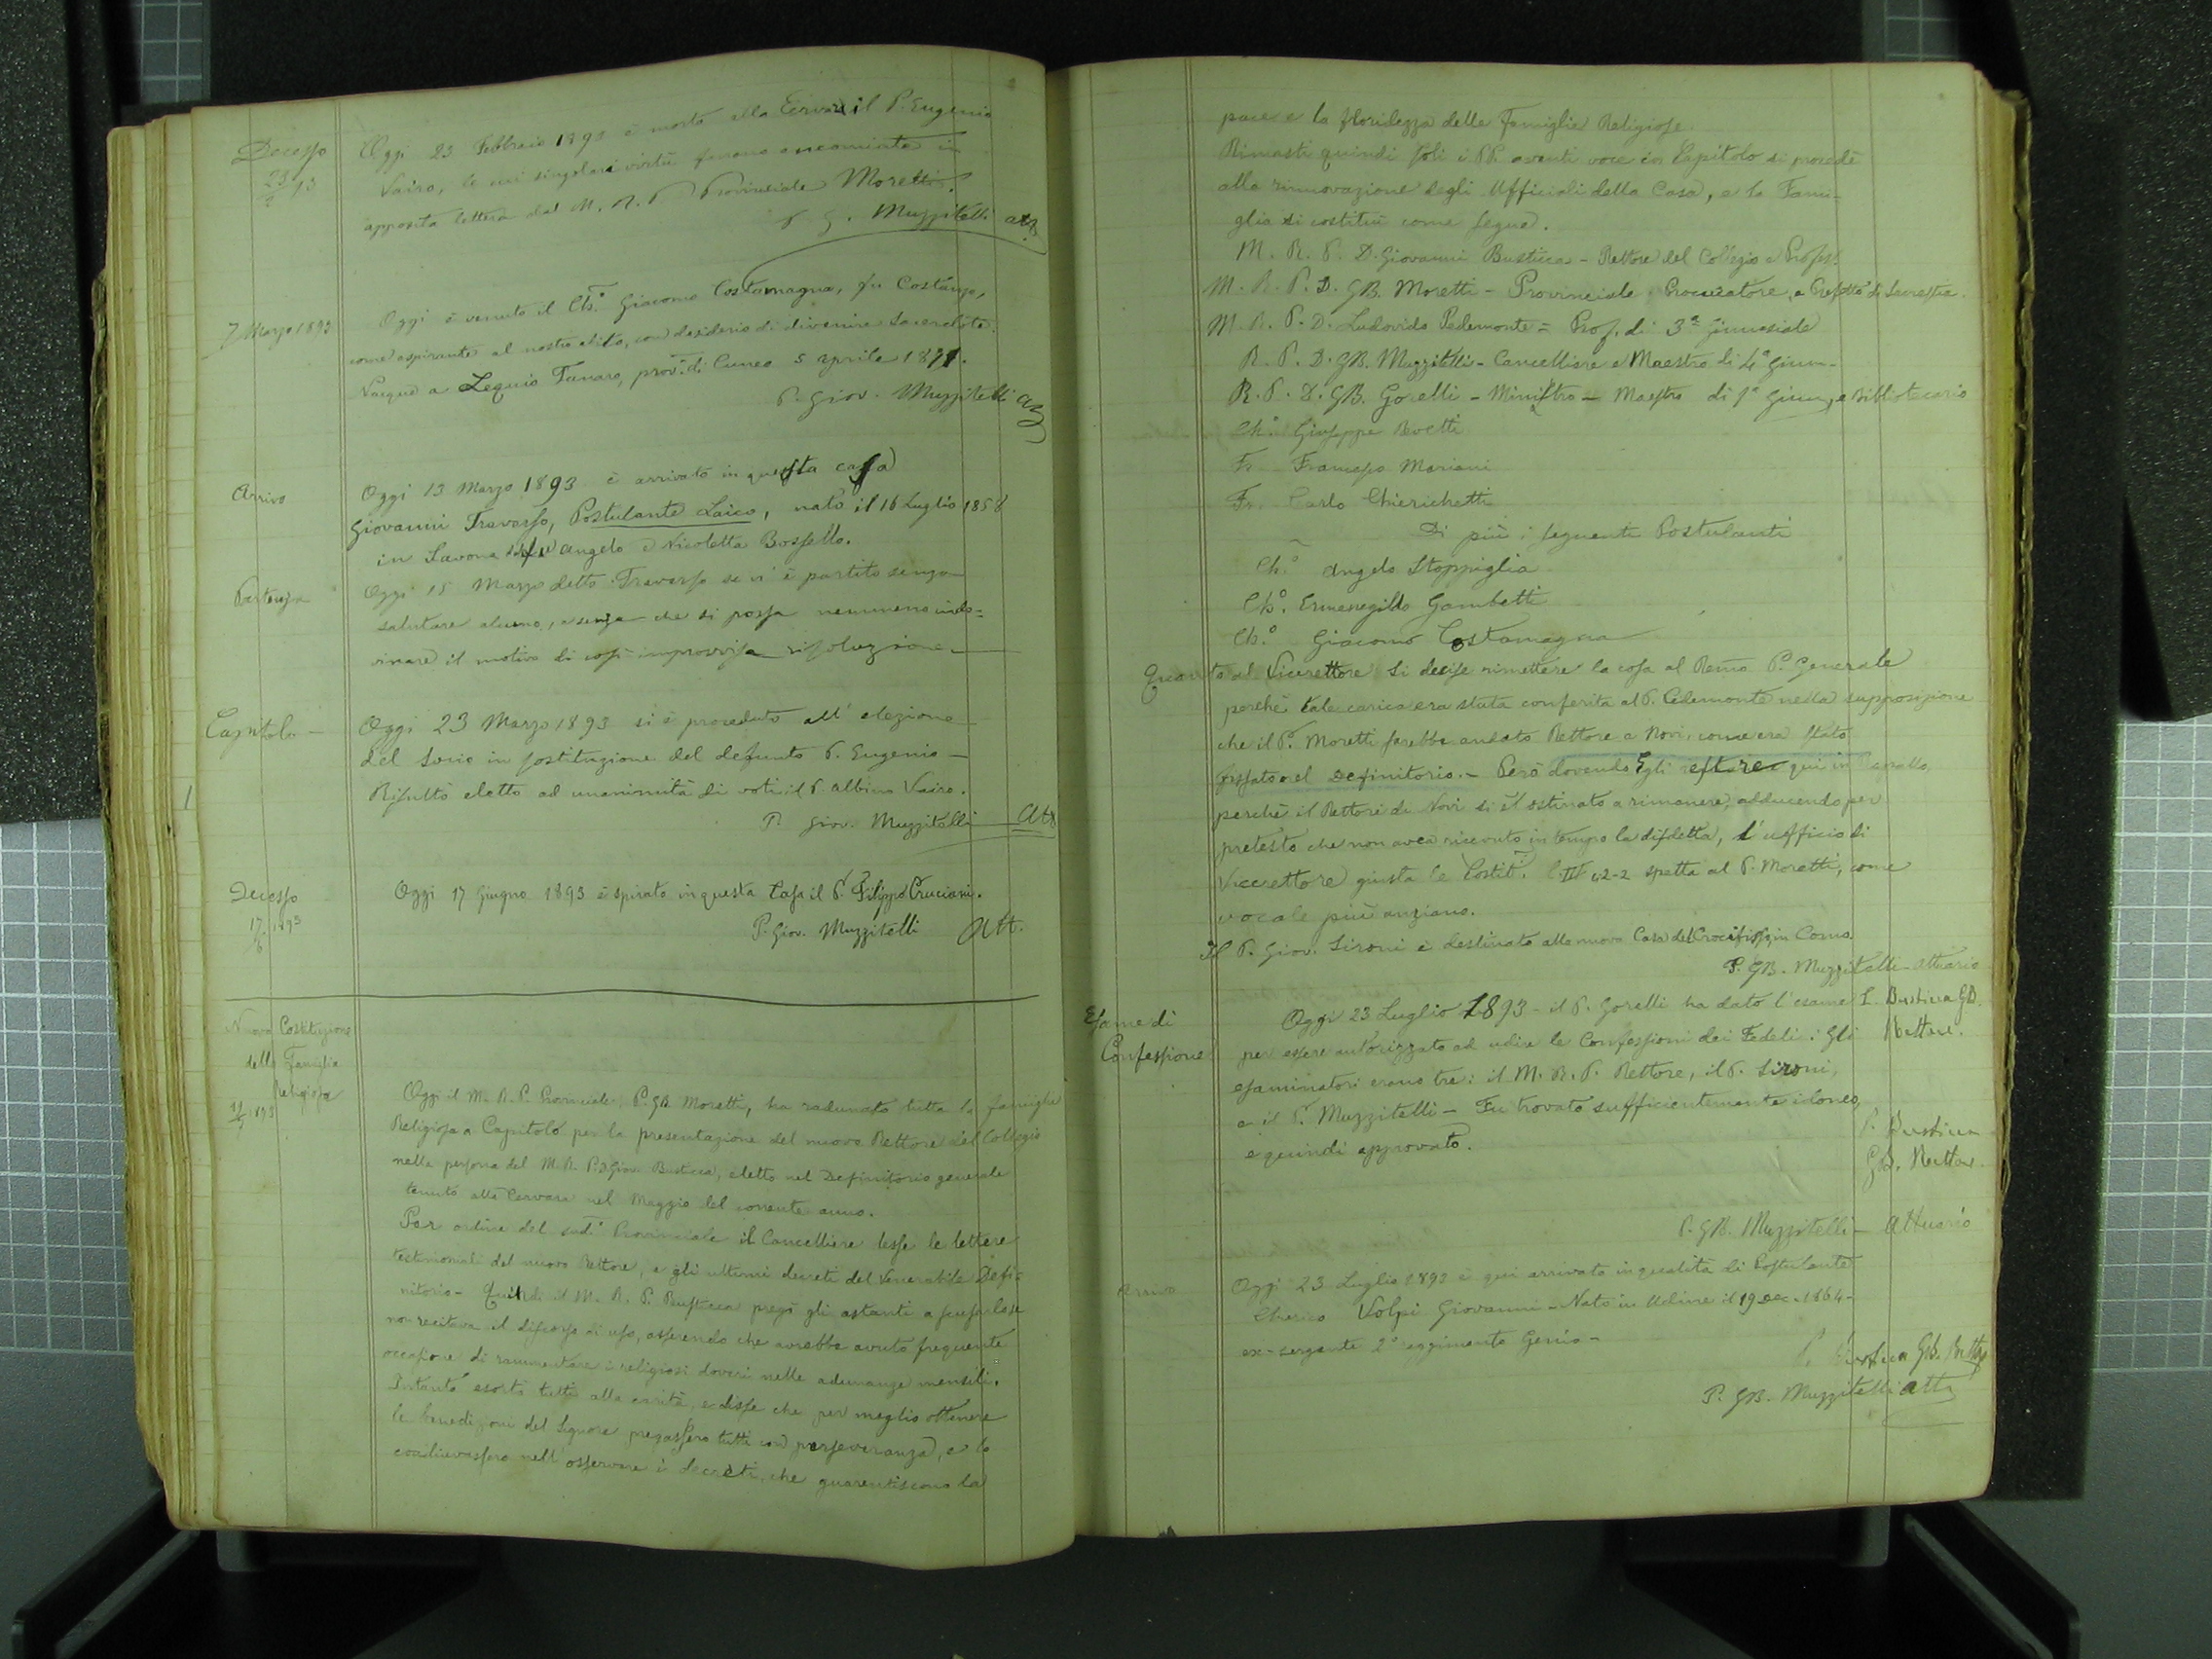 Decesso
23/2 93
Oggi 23 Febbraio 1893 è morto alla Cervara il P. Eugenio
Vairo, le cui singolari virtù furono encomiate in
apposita lettera dal M. R. P. Provinciale Moretti.
P G. Muzzitelli att.
7 Marzo 1893
Oggi è venuto il Ch.º Giacomo Costamagna, fu Costanzo,
come aspirante al nostro abito, con desiderio di divenire Sacerdote.
Nacque a Lequio Tanaro, prov. di Cuneo 5 Aprile 1871.
P. Giov. Muzzitelli
Arrivo
Oggi 13 Marzo 1893 è arrivato in questa casa
Giovanni Travasso, Postulante Laico, nato il 16 Luglio 1858
in Savona dal fu Angelo e Nicoletta Bossello.
Partenza
Oggi 15 Marzo detto Travasso se n'è partito senza
salutare alcuno, e senza che si possa nemmeno indo-
vinare il motivo di così improvvisa risoluzione.
Capitolo
Oggi 23 Marzo 1893 si è proceduto all'elezione
del Socio in sostituzione del defunto P. Eugenio
Risultò eletto ad unanimità di voti il P. Albino Vairo.
P. Giov. Muzzitelli Att
Decesso
17/6 1893
Oggi 17 Giugno 1893 è spirato in questa Casa il P. Filippo Cruciani.
P. Giov. Muzzitelli Att.
Nuova Costituzione
della Famiglia
Religiosa
1893
Oggi il M. R. P. Provinciale, P. GB Moretti, ha radunato tutta la famiglia
Religiosa a Capitolo per la presentazione del nuovo Rettore del Collegio
nella persona del M. R. P. D. Giov. Bustica, eletto nel Definitorio generale
tenuto alla Cervara nel Maggio del corrente anno.
Per ordine del sud.º Provinciale il Cancelliere lesse le lettere
testimoniali del nuovo Rettore, e gli ultimi decreti del Venerabile Defi-
nitorio - Quindi il M. R. P. Bustica pregò gli astanti a scusarlo se
non recitava il discorso di uso, asserendo che avrebbe avuto frequente
occasione di rammentare i religiosi doveri nelle adunanze mensili.
Intanto esortò tutti alla carità, e disse che per meglio ottenere
le benedizioni del Signore pregassero tutti con perseveranza, e lo
coadiuvassero nell'osservare i decreti, che guarentiscono la
pace e la floridezza delle Famiglie Religiose.
Rimasti quindi soli i PP. aventi voce in Capitolo si procedè
alla rinnovazione degli Ufficiali della Casa, e la Fami-
glia si costituì come segue.
M. R. P. D. Giovanni Bustica - Rettore del Collegio e Profess.
M. R. P. D. GB. Moretti - Provinciale Procuratore, e Prefetto di Sacrestia.
M. R. P. D. Ludovido Pedemonte = Prof. di 3ª Ginnasiale
R. P. D. GB. Muzzitelli - Cancelliere e Maestro di 4ª Ginn-
R. P. D. GB. Gorelli - Ministro - Maestro di 1ª Ginn, e Bibliotecario
Ch.º Giuseppe Boetti
Fr. Francesco Mariani
Fr. Carlo Chierichetti
Di più i seguenti Postulanti
Ch.º Angelo Stoppiglia
Ch.º Ermenegildo Gambetti
Ch.º Giacomo Costamagna
Quanto al Vicerettore si decise rimettere la cosa al Remo P. Generale
perchè tale carica era stata conferita al P. Pedemonte nella supposizione
che il P. Moretti sarebbe andato Rettore a Novi, come era stato
fissato nel Definitorio. - Però dovendo Egli restare qui in Rapallo,
perchè il Rettore di Novi si è ostinato a rimanere, adducendo per
pretesto che non avea ricevuto in tempo la disdetta, l'ufficio di
Vicerettore giusta le Costit. l. IV c. 2-2 spetta al P. Moretti, come
vocale più anziano.
Il P. Giov. Sironi è destinato alla nuova Casa del Crocifisso in Como.
P. GB. Muzzitelli - attuario
Bustica GB.
Rettore.
Esame di
Confessione
Oggi 23 Luglio 1893 - il P. Gorelli ha dato l'esame
per essere autorizzato ad udire le Confessioni dei Fedeli: Gli
esaminatori erano tre: il M. R. P. Rettore, il P. Sironi,
e il P. Muzzitelli - Fu trovato sufficientemente idoneo,
e quindi approvato.
P. Bustica
GB. Rettore.
P. GB. Muzzitelli - Attuario
Arrivo
Oggi 23 Luglio 1893 è qui arrivato in qualità di Postulante
Chierico Volpi Giovanni - Nato in Udine il 19 Dec. 1864 -
ex-sergente 2º reggimento Genio -
P. Bustica GB. Rettore
P. GB. Muzzitelli Att